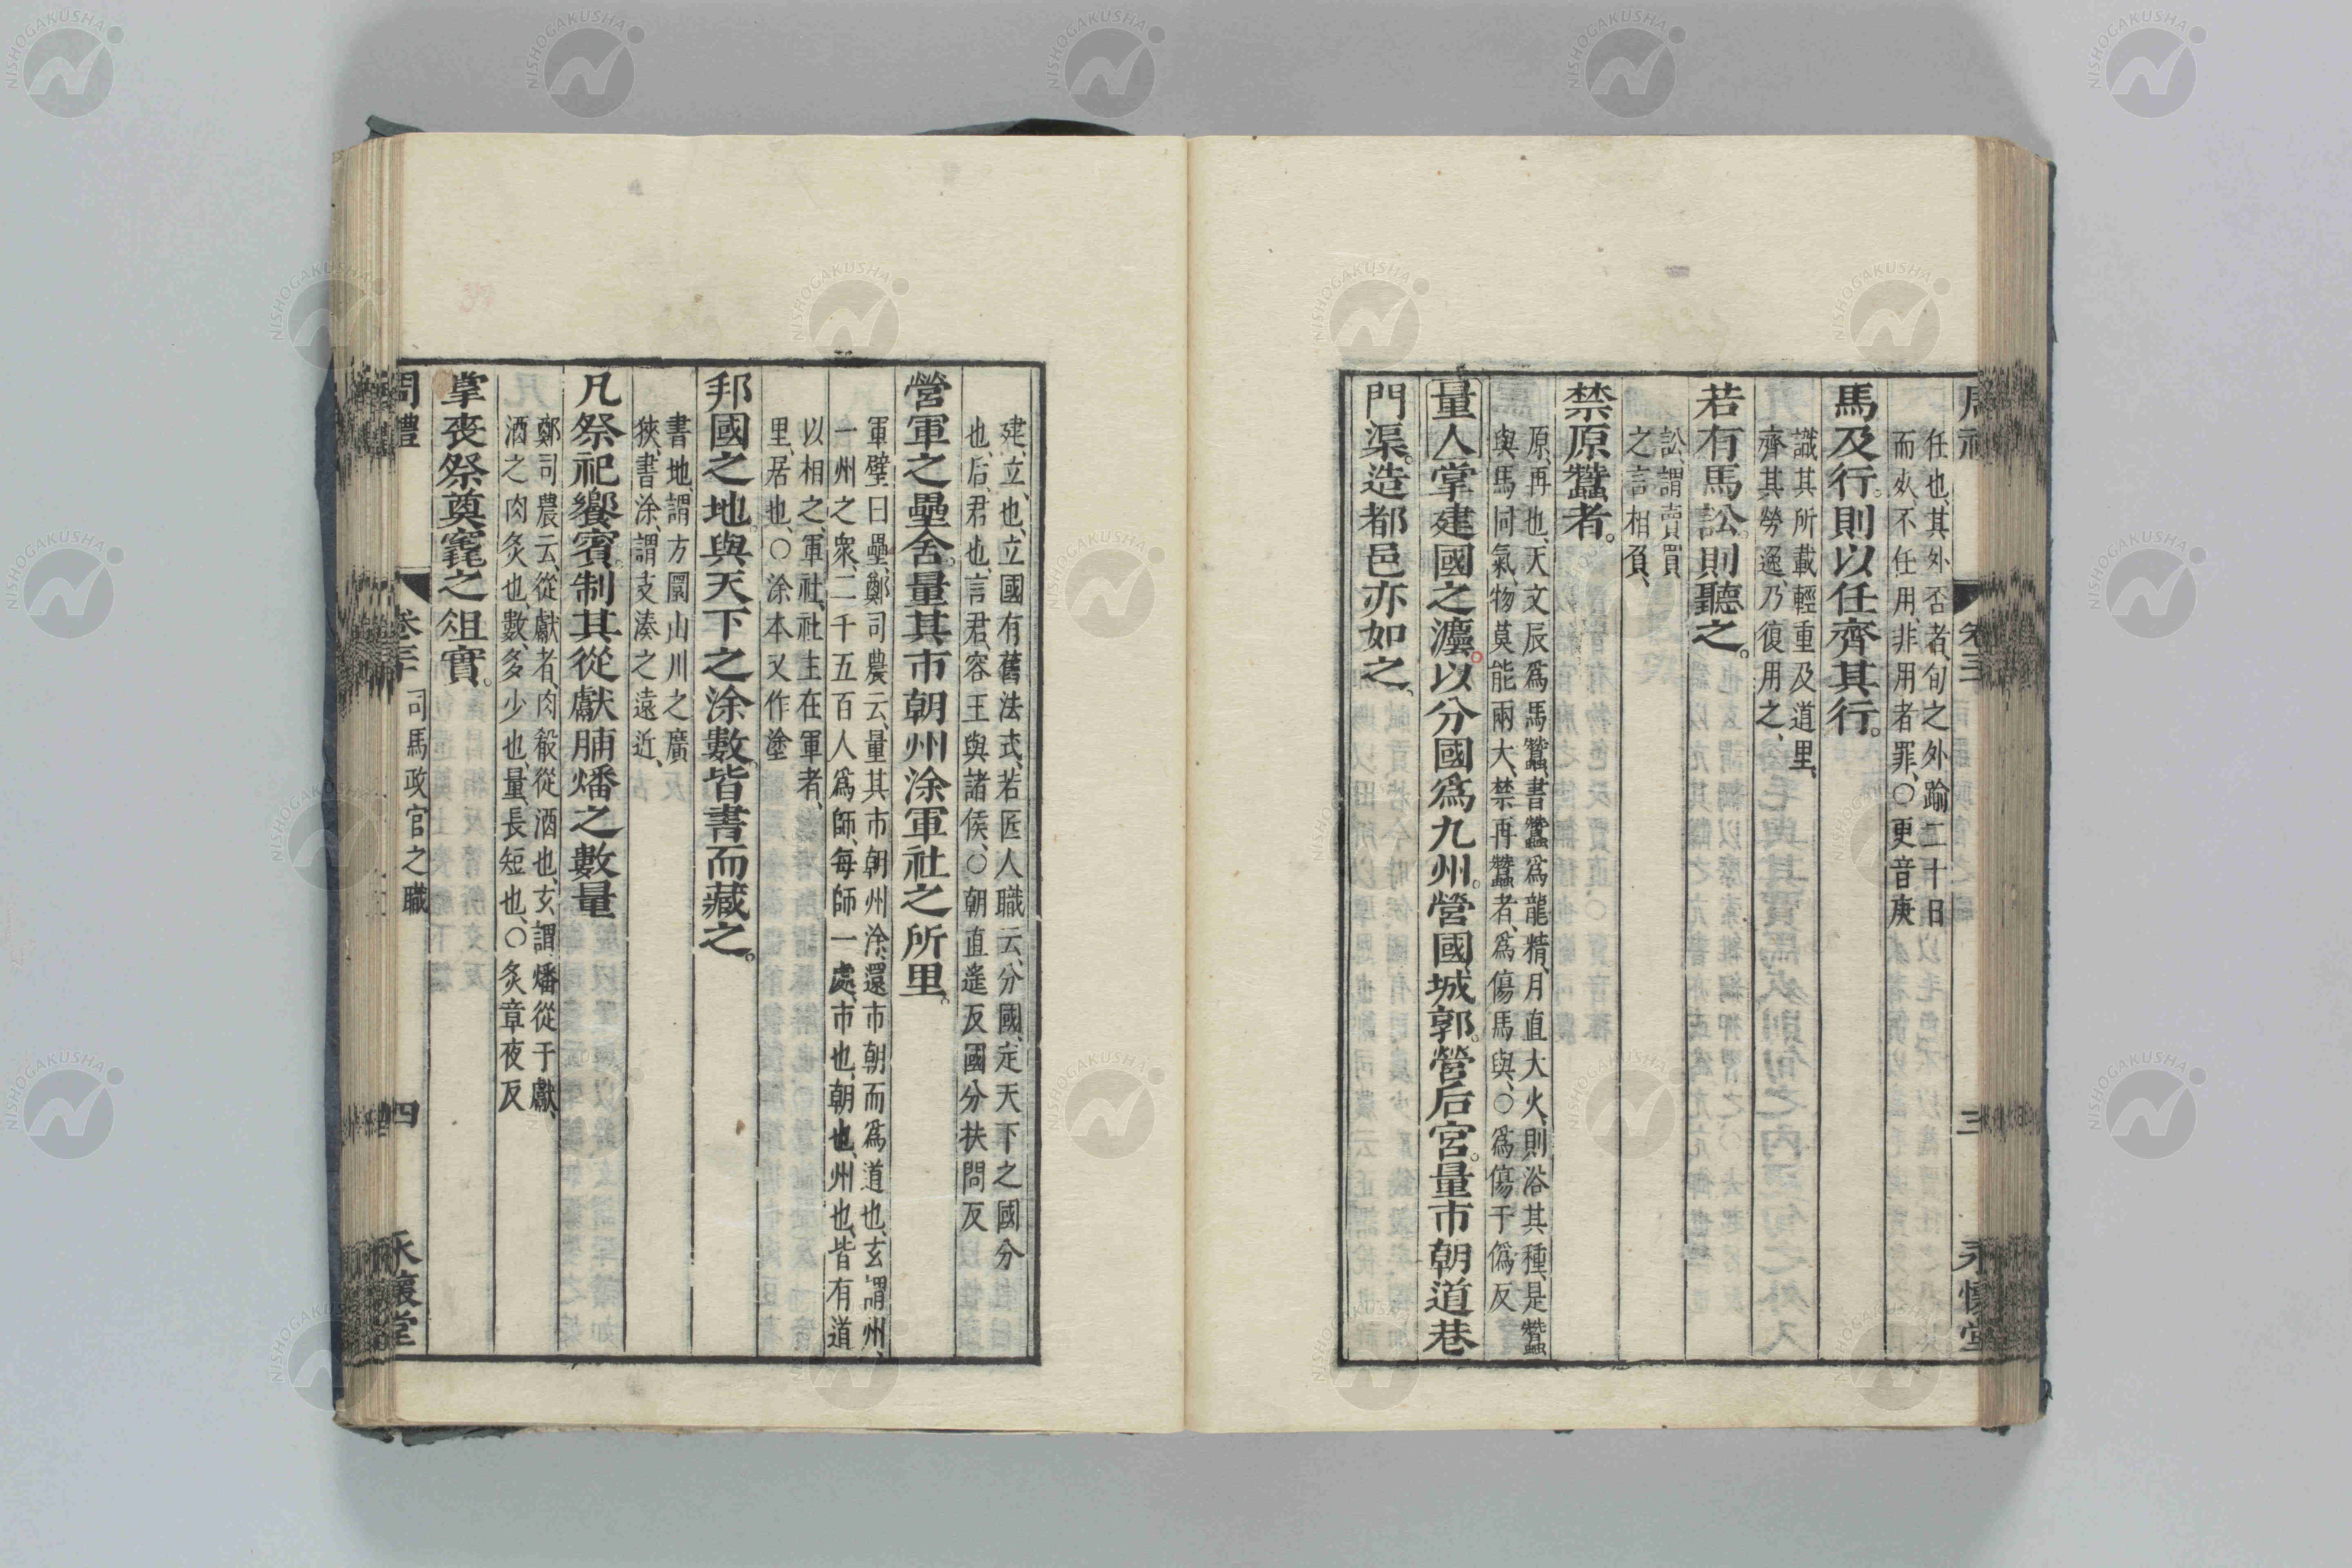 任也、其外否者、旬之外踰二十日
而死不任用、非用者罪、○更音庚
馬及行。則以任齊其行。
識其所載輕重及道里、
齊其勞逸、乃復用之、
若有馬訟。則聽之。
訟、謂賣買
之言相負、
禁原蠶者。
原、再也、天文辰爲馬、蠶書蠶爲龍精、月直大火、則浴其種、是蠶
與馬同氣、物莫能兩大、禁再蠶者、爲傷馬與、○爲傷于僞反
量人掌建國之灋。以分國爲九州。營國城郭。營后宮。量市朝道巷
門渠。造都邑亦如之。
建、立也、立國有舊法式、若匠人職云、分國、定天下之國分
也、后、君也、言君、容王與諸侯、○朝直遙反國分扶問反
營軍之壘舍。量其市朝州涂軍社之所里。
軍壁曰壘、鄭司農云、量其市朝州涂、還市朝而爲道也、玄謂州、
一州之衆、二千五百人爲師、每師一處、市也、朝也、州也、皆有道
以相之、軍社、社主在軍者、
里、居也、○涂本又作塗
邦國之地。與天下之涂數。皆書而藏之。
書地、謂方圜山川之廣
狹、書涂、謂支湊之遠近、
凡祭祀饗賓。制其從獻脯燔之數量
鄭司農云、從獻者、肉殽從酒也、玄謂燔從于獻、
酒之肉炙也、數、多少也、量、長短也、○炙章夜反
掌喪祭奠竁之俎實。
周禮
卷三十 司馬政官之職
四
永懷堂